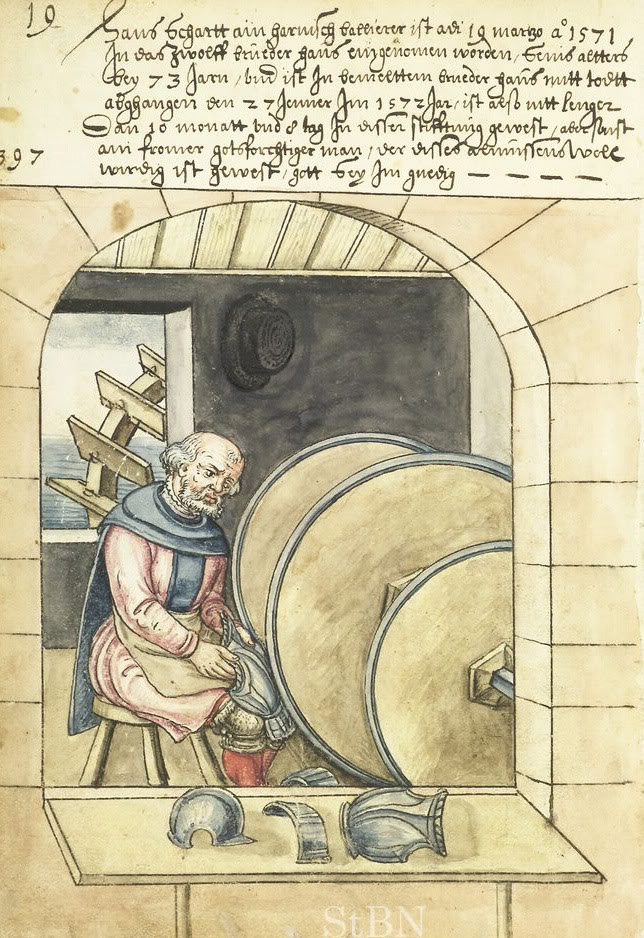 19
Hans Schartt ain harnisch ballierer ist adi 19 martzo a° 1571
In das Zwolff brueder haus eingenomen worden, seins altters
bey 73 Jarn, vnd ist In bemelttem brueder haus mitt todtt
abghangen den 27 Jenner Im 1572 Jar, ist also nitt lenger
Dan 10 monatt vnd 8 tag In disser stifftung gewest, aber sunst
ain fromer gotsforchtiger man, der disses almussens Wol
397
wirdig ist gewest, gott sey Im gnedig — — — —
StBN